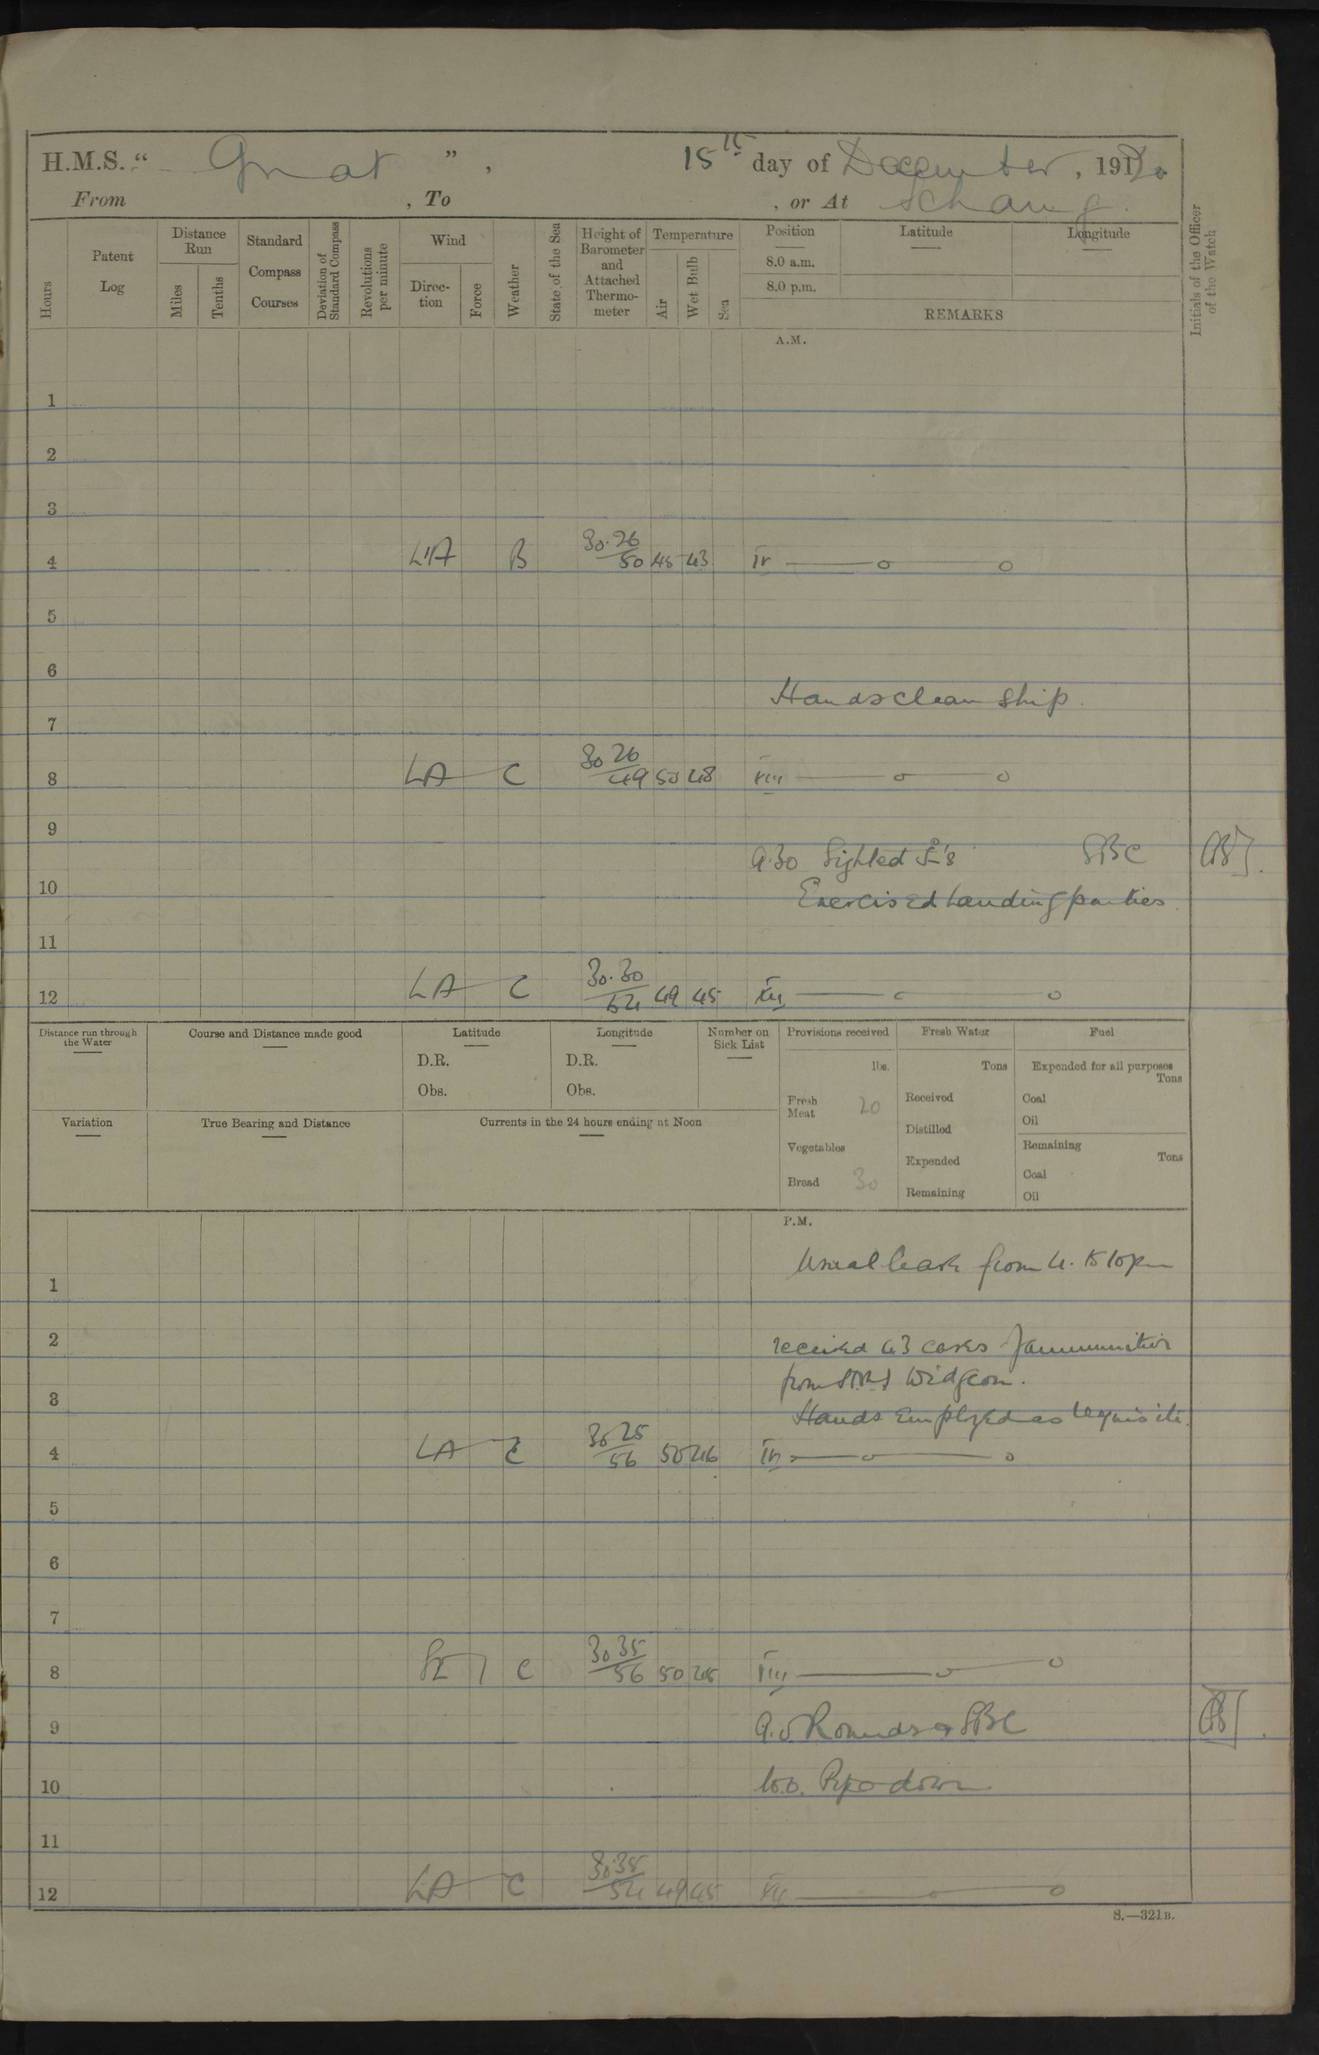 H.M.S. “ Gnat ” , 15th day of December , 1920
From , To , or At Ichang.
Hours
Patent Log
Distance Run
Miles
Tenths
Standard Compass Courses
Deviation of Standard Compass
Revolutions per minute
Wind
Direction
Force
Weather
State of the Sea
Height of Barometer and Attached Thermometer
Temperature
Air
Wet Bulb
Sea
Position
8.0 a.m.
8.0 p.m.
Latitude
Longitude
REMARKS
Initials of the Officer of the Watch
A.M.
1
2
3
4 LA B 30.26/50 45 43 IV
5
6
Hands clean ship.
7
8 LA C 30 26/49 50 48 VIII
9
9.30 Sighted SBC
10 Exercised Landing parties
11
12 LA C 30.30/52 49 45 XII
Distance run through the Water
Course and Distance made good
Latitude
D.R.
Obs.
Longitude
D.R.
Obs.
Number on Sick List
Provisions received
lbs.
Fresh Meat 20
Vegetables
Bread 30
Fresh Water
Tons
Received
Distilled
Expended
Remaining
Fuel
Expended for all purposes
Tons
Coal
Oil
Remaining
Tons
Coal
Oil
Variation
True Bearing and Distance
Currents in the 24 hours ending at Noon
P.M.
Usual leave from 4. to 10 pm
1
2 received 43 cases of ammunition
from HMS Widgeon.
3
Hands Employed as requisite.
4 LA C 30 25/56 50 46 IV
5
6
7
8 SE 1 C 30 35/56 50 45 VIII
9 9.0 Rounds SBC
10 10.0. Pipe down
11
12 LA C 30.35/54 49 45 XII
S.—321B.